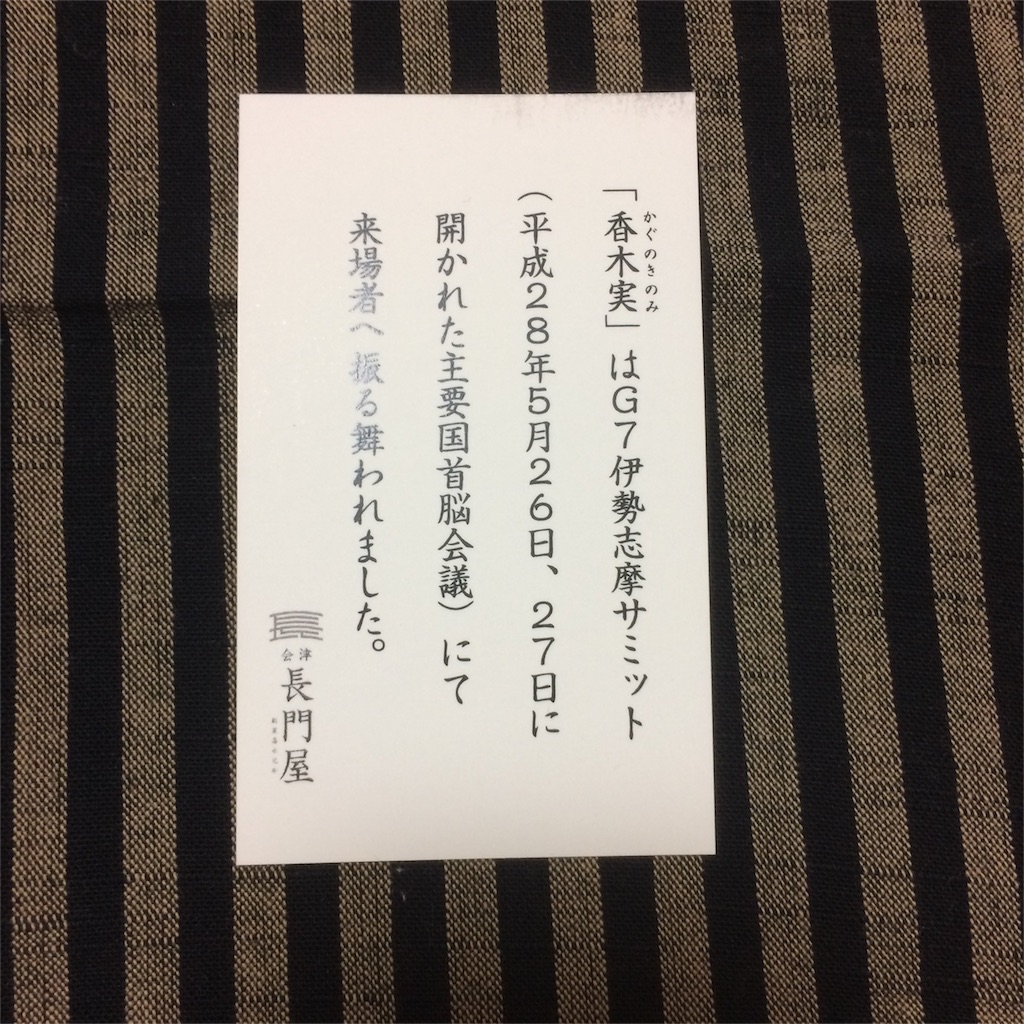 「香木実」はG7伊勢志摩サミット
かぐのきのみ
（平成28年5月26日、27日に
開かれた主要国首脳会議）にて
来場者へ振る舞われました。
会津
長門屋